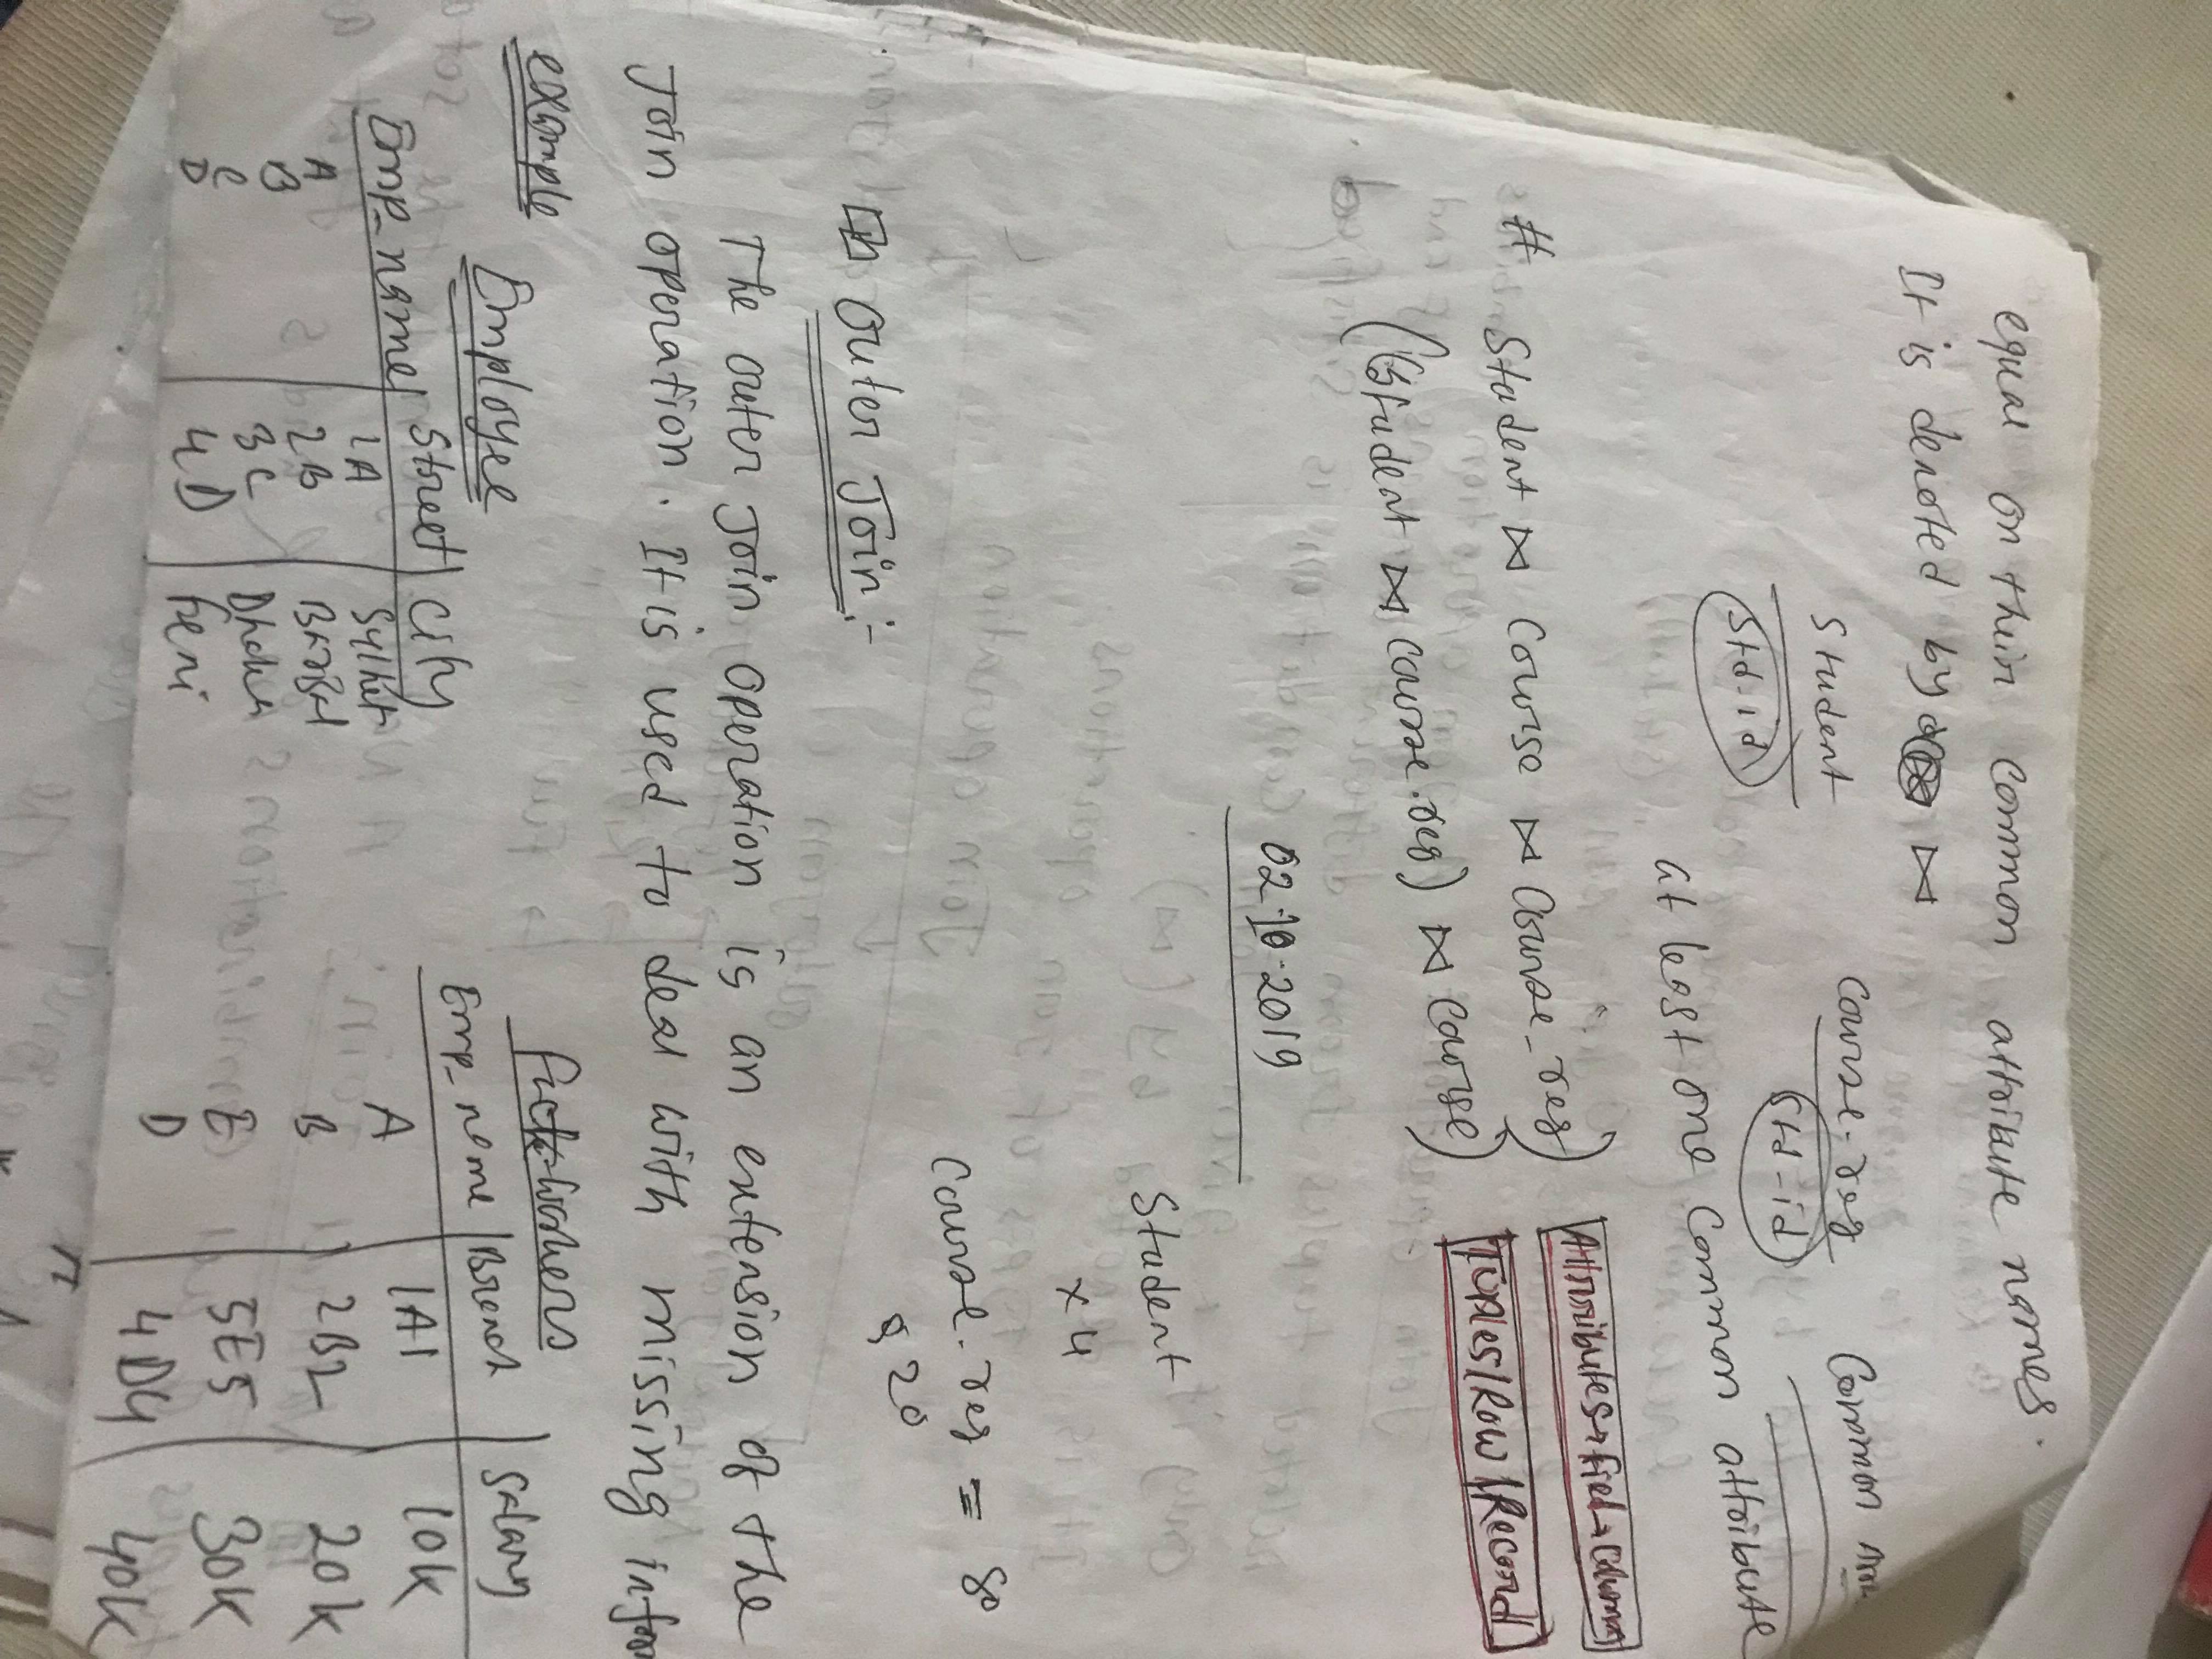 equal on their common attribute names.
It is denoted by ⋈
Student Course-reg Common
Std-id Std-id
at least one common attribute
Attributes→Field→Column
# Student ⋈ Course ⋈ Course_reg)
Tuples/Row/Record
((Student ⋈ Course.reg) ⋈ Course)
02-10-2019
Student
x 4
Course.reg = 80
20
Outer Join:-
The outer join operation is an extension of the
Join operation. It is used to deal with missing infor
example
Employee
Emp_name | Street | City
A 1A Sylhet
B 2B
C 3C Dhaka
D 4D Feni
Workers
Emp_name | Branch | Salary
A 1A1 10K
B 2B2 20K
E 5E5 30K
D 4D4 40K